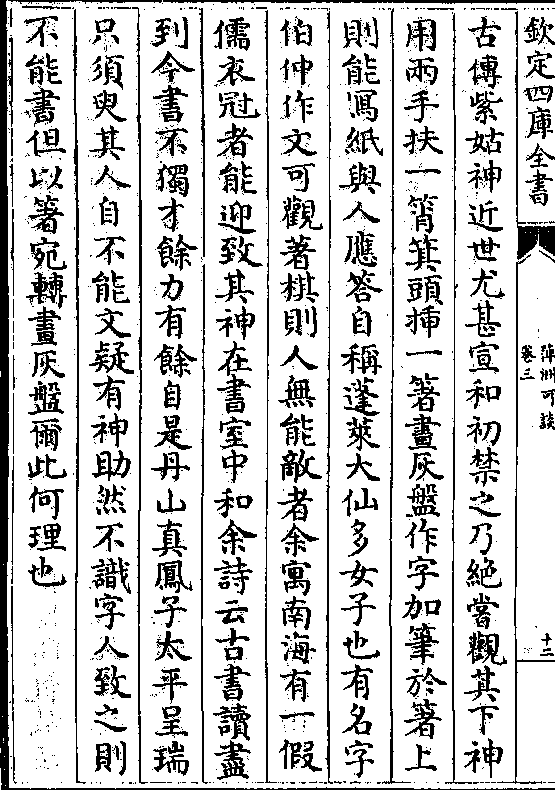 欽定四庫全書
萍洲可談
卷三
十二
古傳紫姑神近世尤甚宣和初禁之乃絕嘗觀其下神
用兩手扶一筲箕頭揷一箸畫灰盤作字加筆於箸上
則能寫紙與人應答自稱蓬萊大仙多女子也有名字
伯仲作文可觀著棋則人無能敵者余寓南海有一假
儒衣冠者能迎致其神在書室中和余詩云古書讀盡
到今書不獨才餘力有餘自是丹山真鳳子太平呈瑞
只須臾其人自不能文疑有神助然不識字人致之則
不能書但以箸宛轉畫灰盤爾此何理也